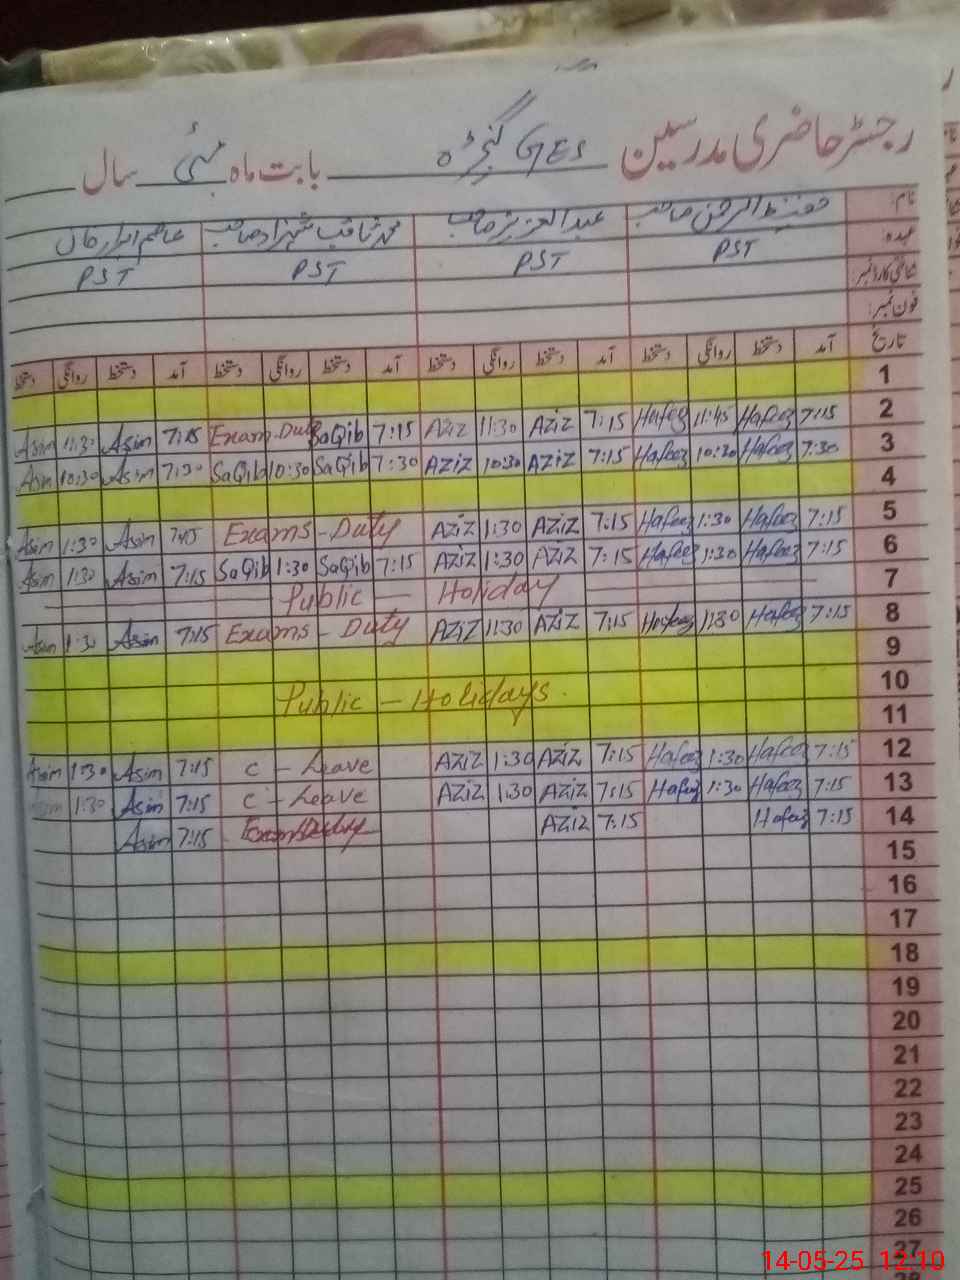 رجسٹر حاضری مدرسین GES گنجڑہ بابت ماہ مئی سال
نام: حفیظ الرحمن صاحب عبدالعزیز صاحب محمد ثاقب شہزاد صاحب عاصم
عہدہ: PST PST PST PST
شناختی کارڈ نمبر:
فون نمبر:
تاریخ آمد دستخط روانگی دستخط آمد دستخط روانگی دستخط آمد دستخط روانگی دستخط آمد دستخط روانگی دستخط
1
Asim 11:30 Asim 7:15 Exam-Duty SaQib 7:15 AZiZ 11:30 AZiZ 7:15 Hafeez 11:45 Hafeez 7:15 2
Asim 10:30 Asim 7:30 SaQib 10:30 SaQib 7:30 AZiZ 10:30 AZiZ 7:15 Hafeez 10:30 Hafeez 7:30 3
4
Asim 1:30 Asim 7:15 Exams - Duty AZiZ 1:30 AZiZ 7:15 Hafeez 1:30 Hafeez 7:15 5
Asim 1:30 Asim 7:15 SaQib 1:30 SaQib 7:15 AZiZ 1:30 AZiZ 7:15 Hafeez 1:30 Hafeez 7:15 6
Public — Holiday 7
Asim 1:30 Asim 7:15 Exams - Duty AZiZ 11:30 AZiZ 7:15 Hafeez 1:30 Hafeez 7:15 8
9
Public - Holidays. 10
11
Asim 1:30 Asim 7:15 C - Leave AZiZ 1:30 AZiZ 7:15 Hafeez 1:30 Hafeez 7:15 12
Asim 1:30 Asim 7:15 C - Leave AZiZ 1:30 AZiZ 7:15 Hafeez 1:30 Hafeez 7:15 13
Asim 7:15 Exams Duty AZiZ 7:15 Hafeez 7:15 14
15
16
17
18
19
20
21
22
23
24
25
26
27
14-05-25 12:10